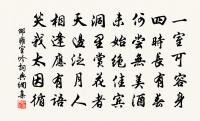 一室可容身
四時長有春
何嘗無美酒
未始絕佳賓
洞裏賞花者
天邊泛月人
相逢應有語
笑我太因循
邵雍室吟詞典網書